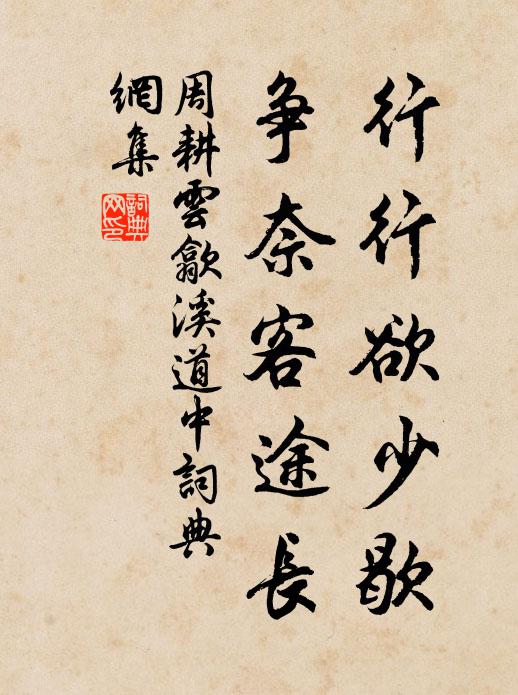 行行欲少歇
爭奈客途長
周耕雲歙溪道中詞典
網集
詞典
网印